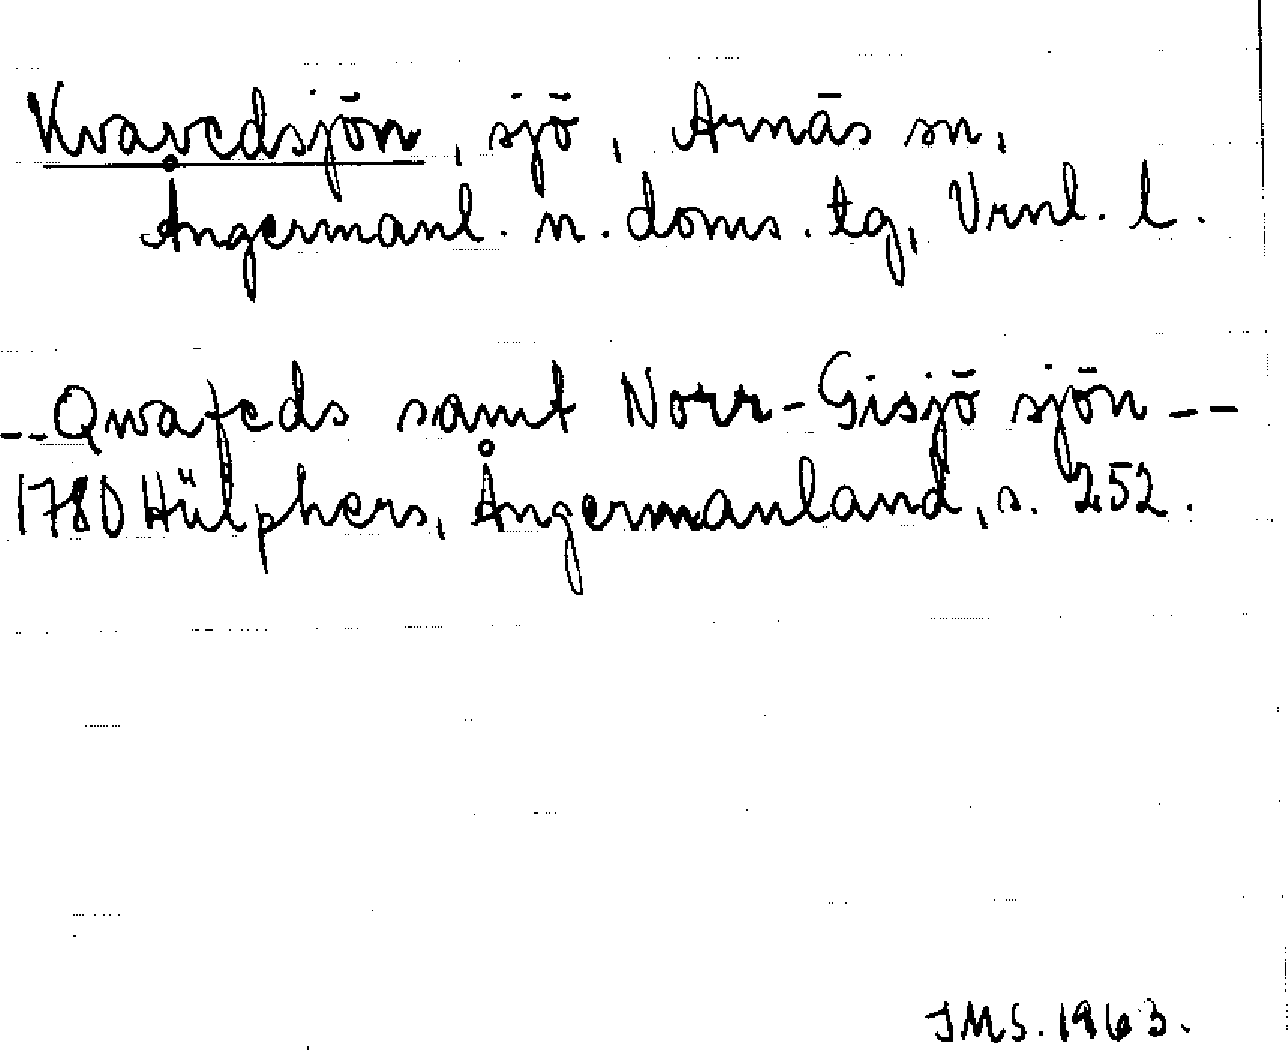 Kvavedsjön, sjö, Arnäs sn,
Ångermanl. n. doms. tg, Vrnl. l.
--Qwafeds samt Norr-Gisjö sjön--
1780 Hülphers, Ångermanland, s. 252.
JMS. 1963.